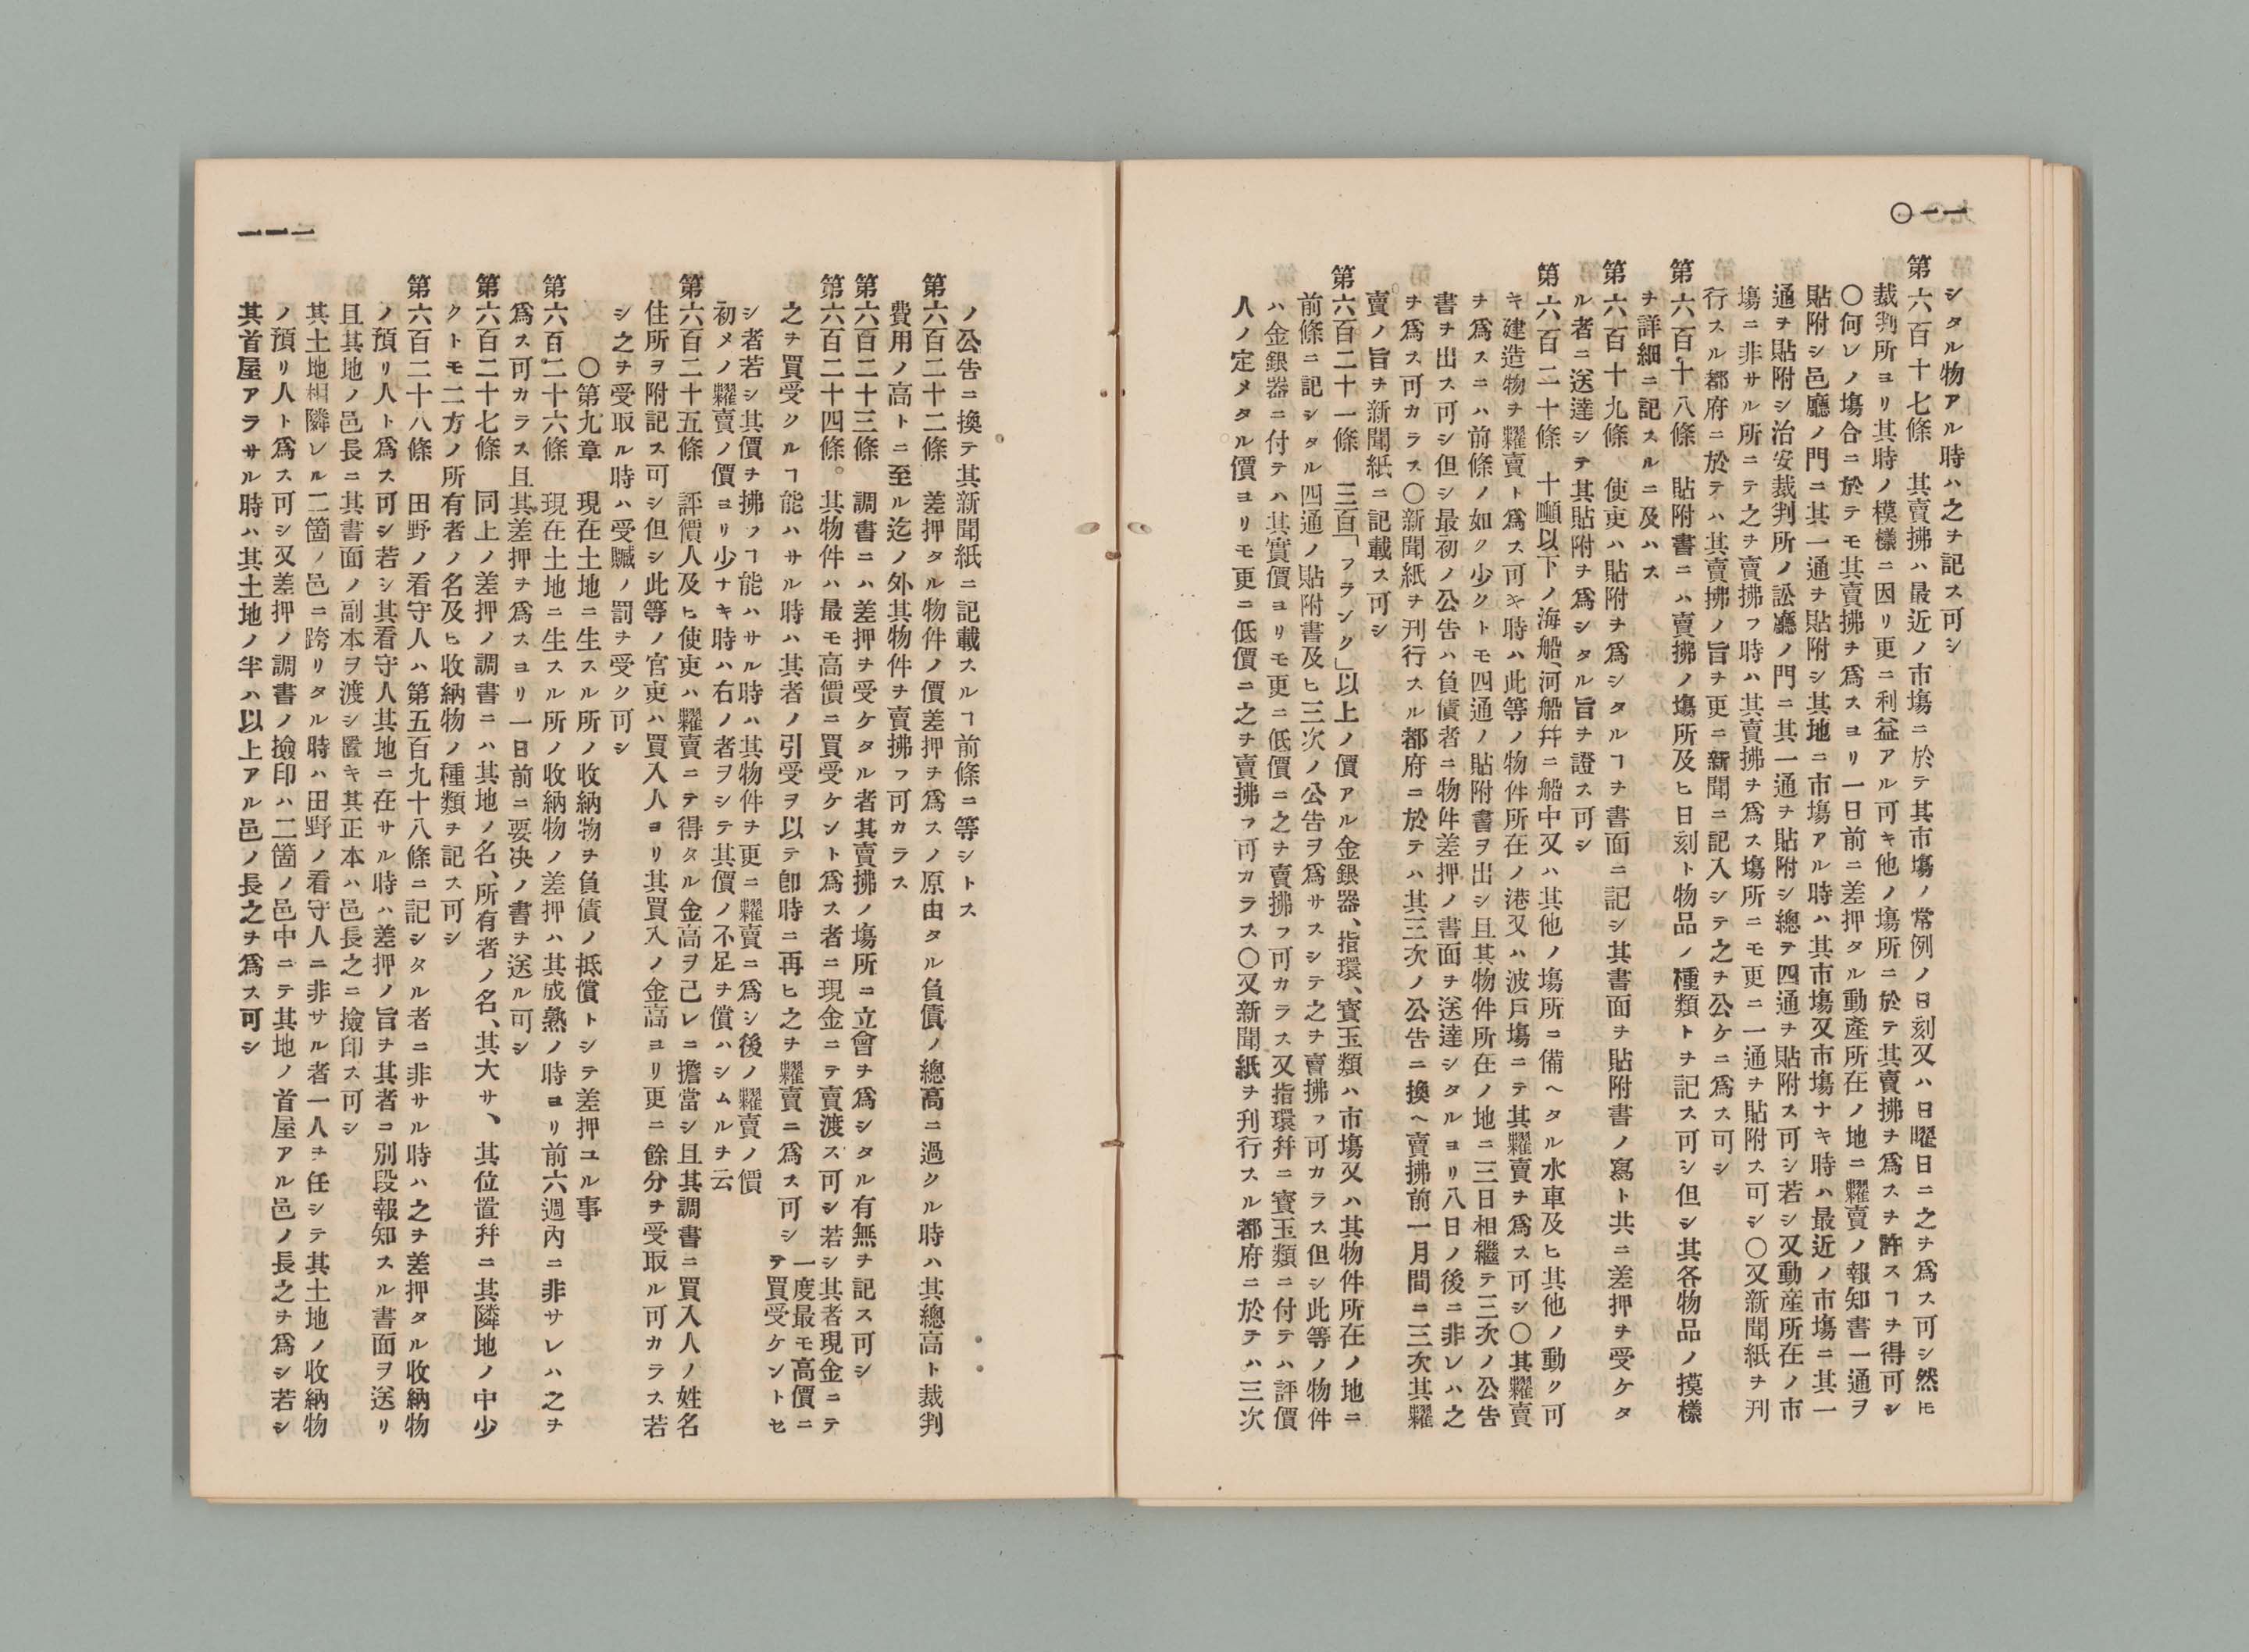 一一〇
シタル物アル時ハ之ヲ記ス可シ
第六百十七條　其賣拂ハ最近ノ市塲ニ於テ其市塲ノ常例ノ日刻又ハ日曜日ニ之ヲ爲ス可シ然𪜈
裁判所ヨリ其時ノ模樣ニ因リ更ニ利益アル可キ他ノ塲所ニ於テ其賣拂ヲ爲スヲ許スヿヲ得可シ
〇何レノ塲合ニ於テモ其賣拂ヲ爲スヨリ一日前ニ差押タル動產所在ノ地ニ糶賣ノ報知書一通ヲ
貼附シ邑廳ノ門ニ其一通ヲ貼附シ其地ニ市塲アル時ハ其市塲又市塲ナキ時ハ最近ノ市塲ニ其一
通ヲ貼附シ治安裁判所ノ訟廳ノ門ニ其一通ヲ貼附シ總テ四通ヲ貼附ス可シ若シ又動產所在ノ市
塲ニ非サル所ニテ之ヲ賣拂フ時ハ其賣拂ヲ爲ス塲所ニモ更ニ一通ヲ貼附ス可シ〇又新聞紙ヲ刋
行スル都府ニ於テハ其賣拂ノ旨ヲ更ニ新聞ニ記入シテ之ヲ公ケニ爲ス可シ
第六百十八條　貼附書ニハ賣拂ノ塲所及ヒ日刻ト物品ノ種類トヲ記ス可シ但シ其各物品ノ摸樣
ヲ詳細ニ記スルニ及ハス
第六百十九條　使吏ハ貼附ヲ爲シタルヿヲ書面ニ記シ其書面ヲ貼附書ノ寫ト共ニ差押ヲ受ケタ
ル者ニ送達シテ其貼附ヲ爲シタル旨ヲ證ス可シ
第六百二十條　十噸以下ノ海船、河船幷ニ船中又ハ其他ノ塲所ニ備ヘタル水車及ヒ其他ノ動ク可
キ建造物ヲ糶賣ト爲ス可キ時ハ此等ノ物件所在ノ港又ハ波戸塲ニテ其糶賣ヲ爲ス可シ〇其糶賣
ヲ爲スニハ前條ノ如ク少クトモ四通ノ貼附書ヲ出シ且其物件所在ノ地ニ三日相繼テ三次ノ公告
書ヲ出ス可シ但シ最初ノ公告ハ負債者ニ物件差押ノ書面ヲ送達シタルヨリ八日ノ後ニ非レハ之
ヲ爲ス可カラス〇新聞紙ヲ刋行スル都府ニ於テハ其三次ノ公告ニ換ヘ賣拂前一月間ニ三次其糶
賣ノ旨ヲ新聞紙ニ記載ス可シ
第六百二十一條　三百「フランク」以上ノ價アル金銀器、指環、寳玉類ハ市塲又ハ其物件所在ノ地ニ
前條ニ記シタル四通ノ貼附書及ヒ三次ノ公告ヲ爲サスシテ之ヲ賣拂フ可カラス但シ此等ノ物件
ハ金銀器ニ付テハ其實價ヨリモ更ニ低價ニ之ヲ賣拂フ可カラス又指環幷ニ寳玉類ニ付テハ評價
人ノ定メタル價ヨリモ更ニ低價ニ之ヲ賣拂フ可カラス〇又新聞紙ヲ刋行スル都府ニ於テハ三次
一一一
ノ公告ニ換テ其新聞紙ニ記載スルヿ前條ニ等シトス
第六百二十二條　差押タル物件ノ價差押ヲ爲スノ原由タル負債ノ總高ニ過クル時ハ其總高ト裁判
費用ノ高トニ至ル迄ノ外其物件ヲ賣拂フ可カラス
第六百二十三條　調書ニハ差押ヲ受ケタル者其賣拂ノ塲所ニ立會ヲ爲シタル有無ヲ記ス可シ
第六百二十四條。其物件ハ最モ高價ニ買受ケント爲ス者ニ現金ニテ賣渡ス可シ若シ其者現金ニテ
之ヲ買受クルヿ能ハサル時ハ其者ノ引受ヲ以テ卽時ニ再ヒ之ヲ糶賣ニ爲ス可シ
一度最モ高價ニ
テ買受ケントセ
シ者若シ其價ヲ拂フヿ能ハサル時ハ其物件ヲ更ニ糶賣ニ爲シ後ノ糶賣ノ價
初メノ糶賣ノ價ヨリ少ナキ時ハ右ノ者ヲシテ其價ノ不足ヲ償ハシムルヲ云
第六百二十五條　評價人及ヒ使吏ハ糶賣ニテ得タル金高ヲ己レニ擔當シ且其調書ニ買入人ノ姓名
住所ヲ附記ス可シ但シ此等ノ官吏ハ買入人ヨリ其買入ノ金高ヨリ更ニ餘分ヲ受取ル可カラス若
シ之ヲ受取ル時ハ受贓ノ罰ヲ受ク可シ
〇第九章　現在土地ニ生スル所ノ收納物ヲ負債ノ抵償トシテ差押ユル事
第六百二十六條　現在土地ニ生スル所ノ收納物ノ差押ハ其成熟ノ時ヨリ前六週內ニ非サレハ之ヲ
爲ス可カラス且其差押ヲ爲スヨリ一日前ニ要决ノ書ヲ送ル可シ
第六百二十七條　同上ノ差押ノ調書ニハ其地ノ名、所有者ノ名、其大サ、其位置幷ニ其隣地ノ中少
クトモ二方ノ所有者ノ名及ヒ收納物ノ種類ヲ記ス可シ
第六百二十八條　田野ノ看守人ハ第五百九十八條ニ記シタル者ニ非サル時ハ之ヲ差押タル收納物
ノ預リ人ト爲ス可シ若シ其看守人其地ニ在サル時ハ差押ノ旨ヲ其者ニ別段報知スル書面ヲ送リ
且其地ノ邑長ニ其書面ノ副本ヲ渡シ置キ其正本ハ邑長之ニ撿印ス可シ
其土地相隣レル二箇ノ邑ニ跨リタル時ハ田野ノ看守人ニ非サル者一人ヲ任シテ其土地ノ收納物
ノ預リ人ト爲ス可シ又差押ノ調書ノ撿印ハ二箇ノ邑中ニテ其地ノ首屋アル邑ノ長之ヲ爲シ若シ
其首屋アラサル時ハ其土地ノ半ハ以上アル邑ノ長之ヲ爲ス可シ